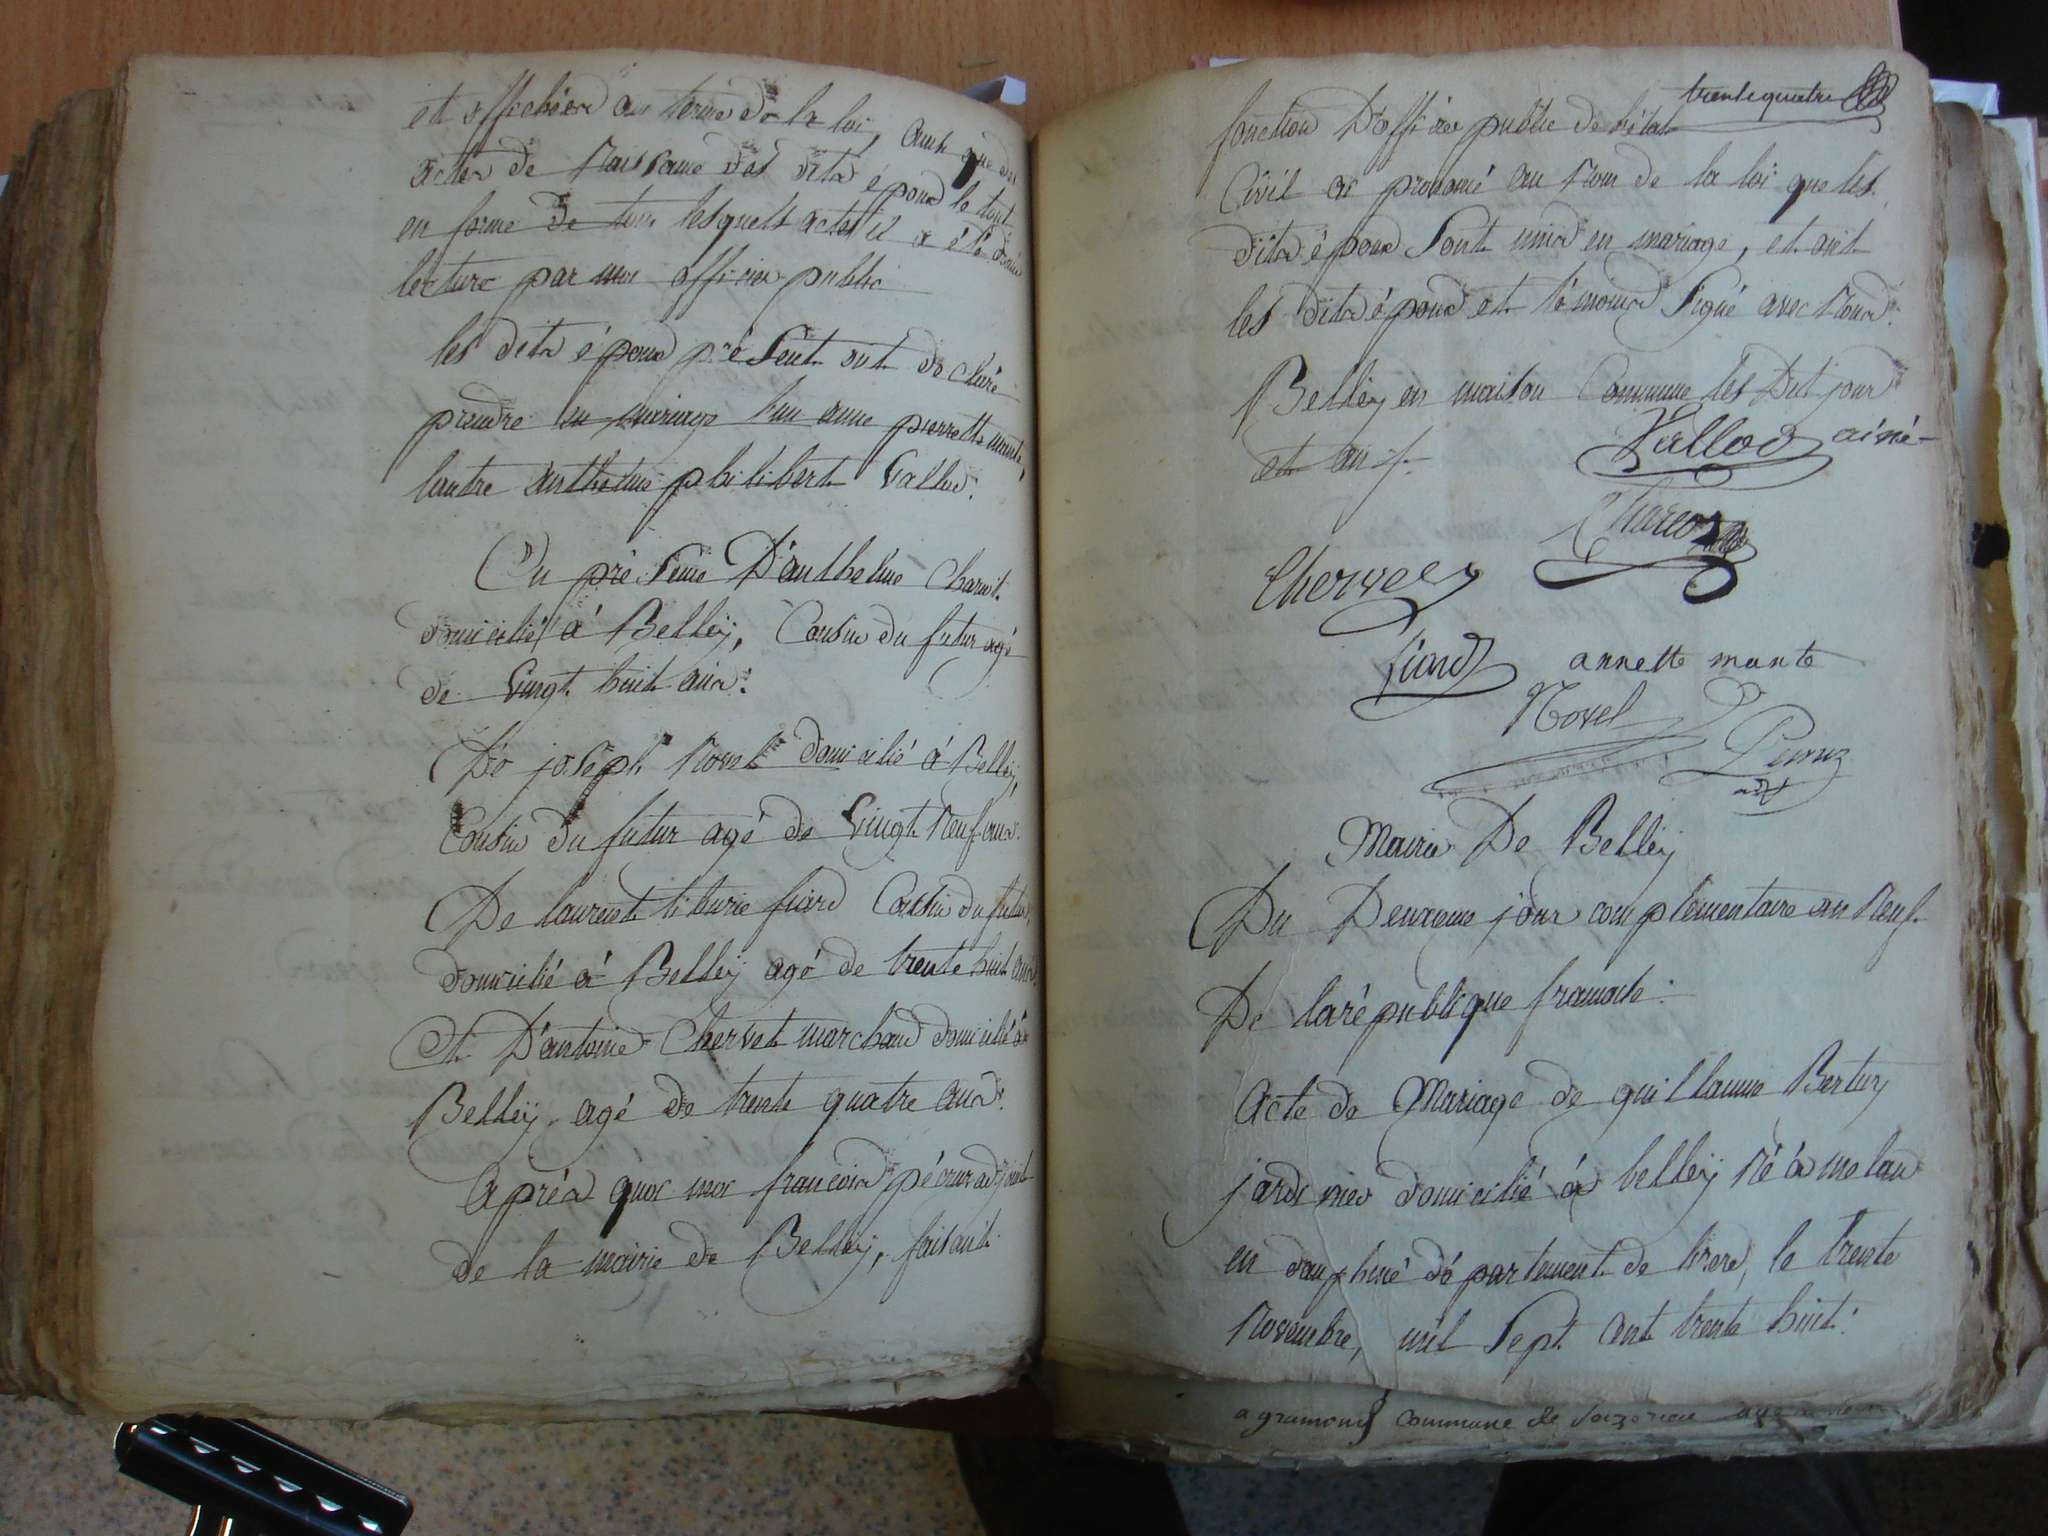 et affichées au terme de la loi, ainsi que des
actes de naissance des dits époux le tout
en forme de tous lesquels actes il a été donné
lecture par moi officier public
les dits époux présent ont declaré
prendre en mariage l'un anne pierrette mante,
lautre anthelme philibert Vallod.
En présence D'anthelme Charcot
domicilié à Belleÿ, Cousin du futur agé
de Vingt huit ans.
De joseph Novel domicilié à Belleÿ,
Cousin du futur agé de Vingt Neuf ans.
De laurent tiburce fiard Cousin du futur,
domicilié à Belleÿ agé de trente huit ans.
Et D'antoine Chervet marchand domicilié à
Belleÿ, agé de trente quatre ans.
Après quoi moi françois adjoint
de la mairie de Belleÿ, faisant
trente quatre
fonction D'officier public de l'état
Civil ai prononcé au Nom de la loi que les
dits époux Sont unis en mariage, et ont
les dits époux et témoins Signé avec Nous.
Belleÿ en maison Commune les Dit jour
et an
Vallod ainé
Charcot
Chervet
fiard annette mante
Novel
Mairie De Belleÿ
Du Deuxieme jour complémentaire an Neuf
De la république francaise.
Acte de Mariage de guillaume
jardinier domicilié à belleÿ Né à
en dauphiné département de lizere, le trente
Novembre, mil Sept cent trente huit.
a commune de